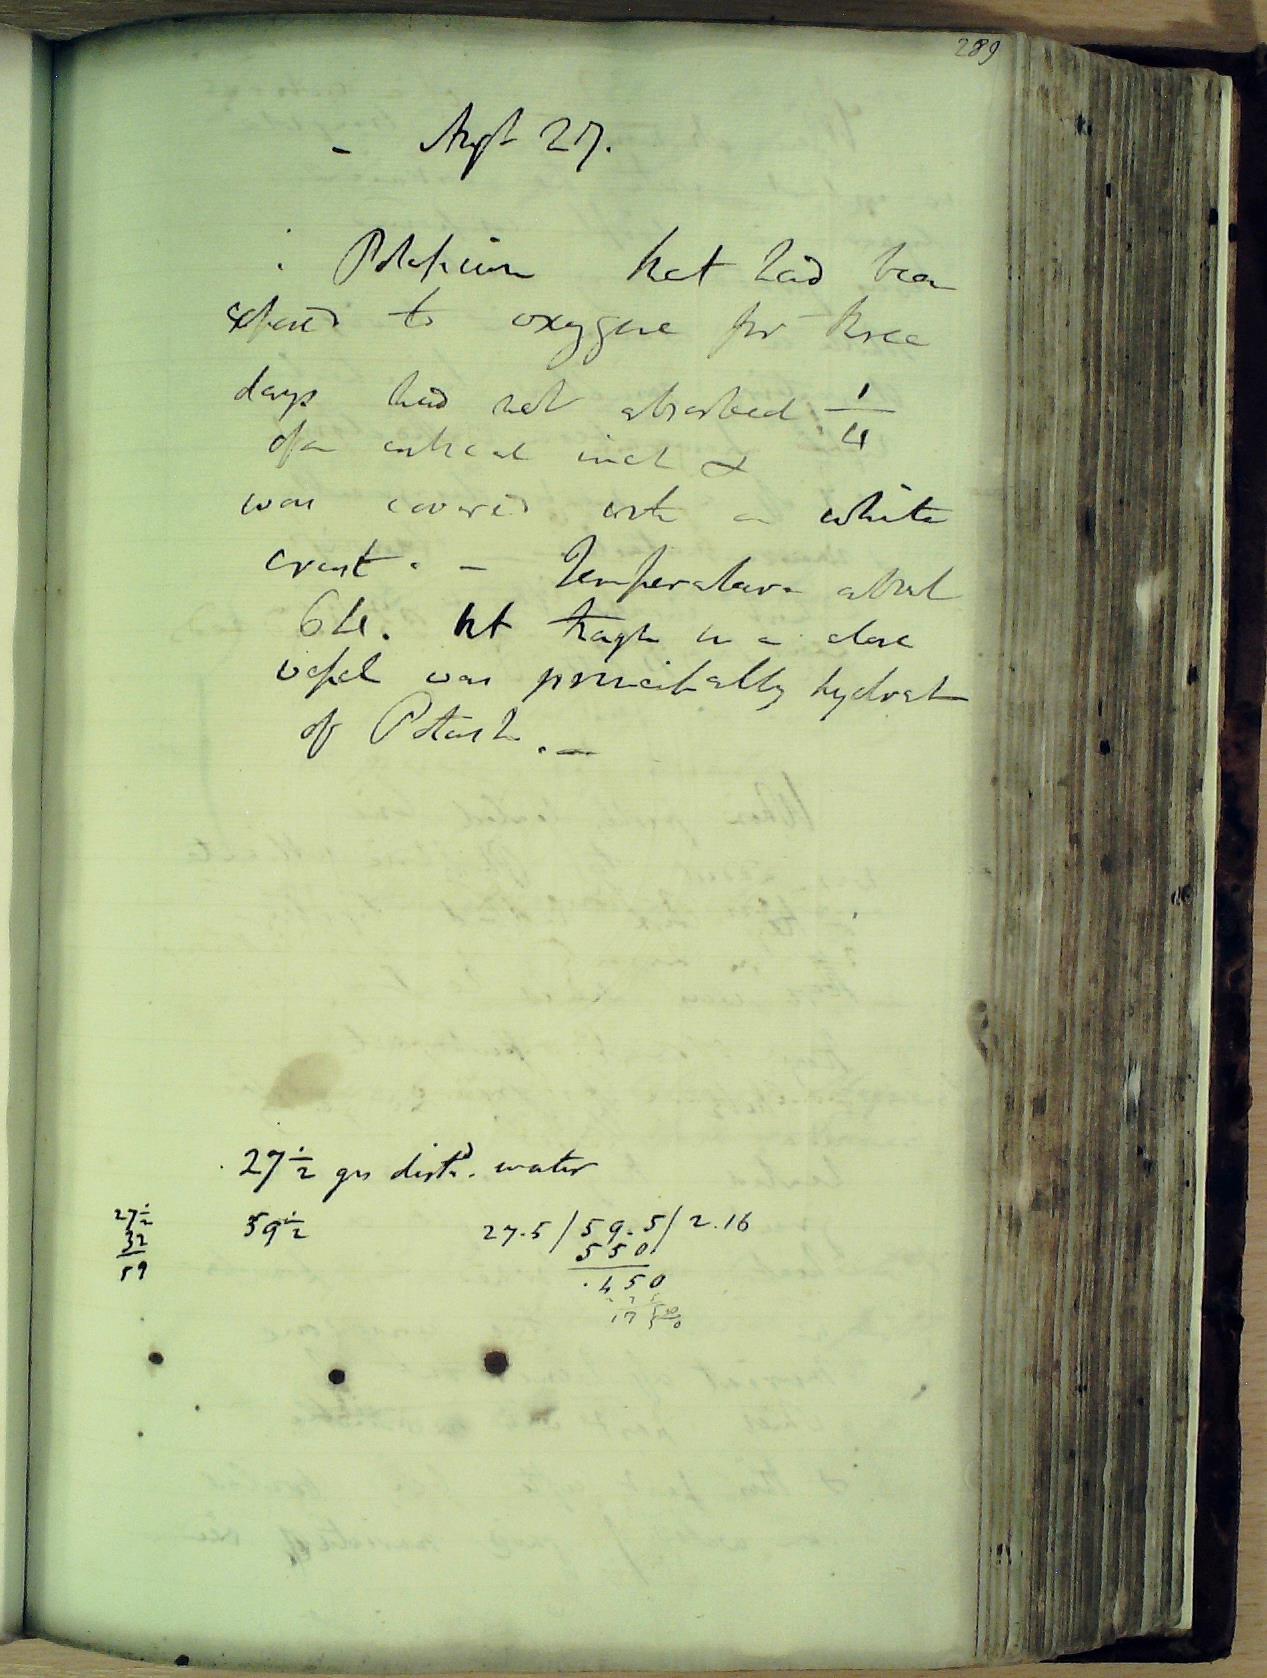 289
- Augt 27.
Potassium that had been
exposed to oxygene for three
days had not absorbed 1/4
of a cubical inch &
was covered with a white
crust. - Temperature about
64. This though in a close
vessel was principally hydrat
of Potash. -
27 1/2 grs distd. water
27 1/2
32
59
59 1/2
27.5/59.5/2.16
550
.450